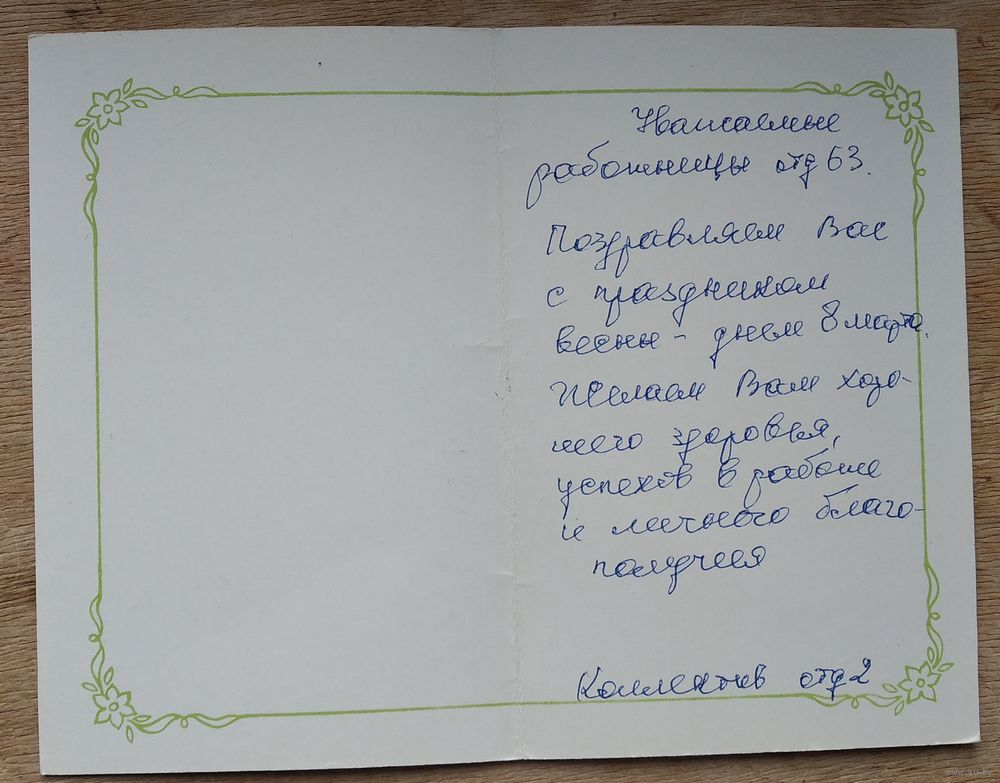 Уважаемые
работницы отд 63.
Поздравляем Вас
с праздником
весны - днем 8 марта.
Желаем Вам хоро-
шего здоровья,
успехов в работе
и личного благо-
получия
Коллектив отд 2